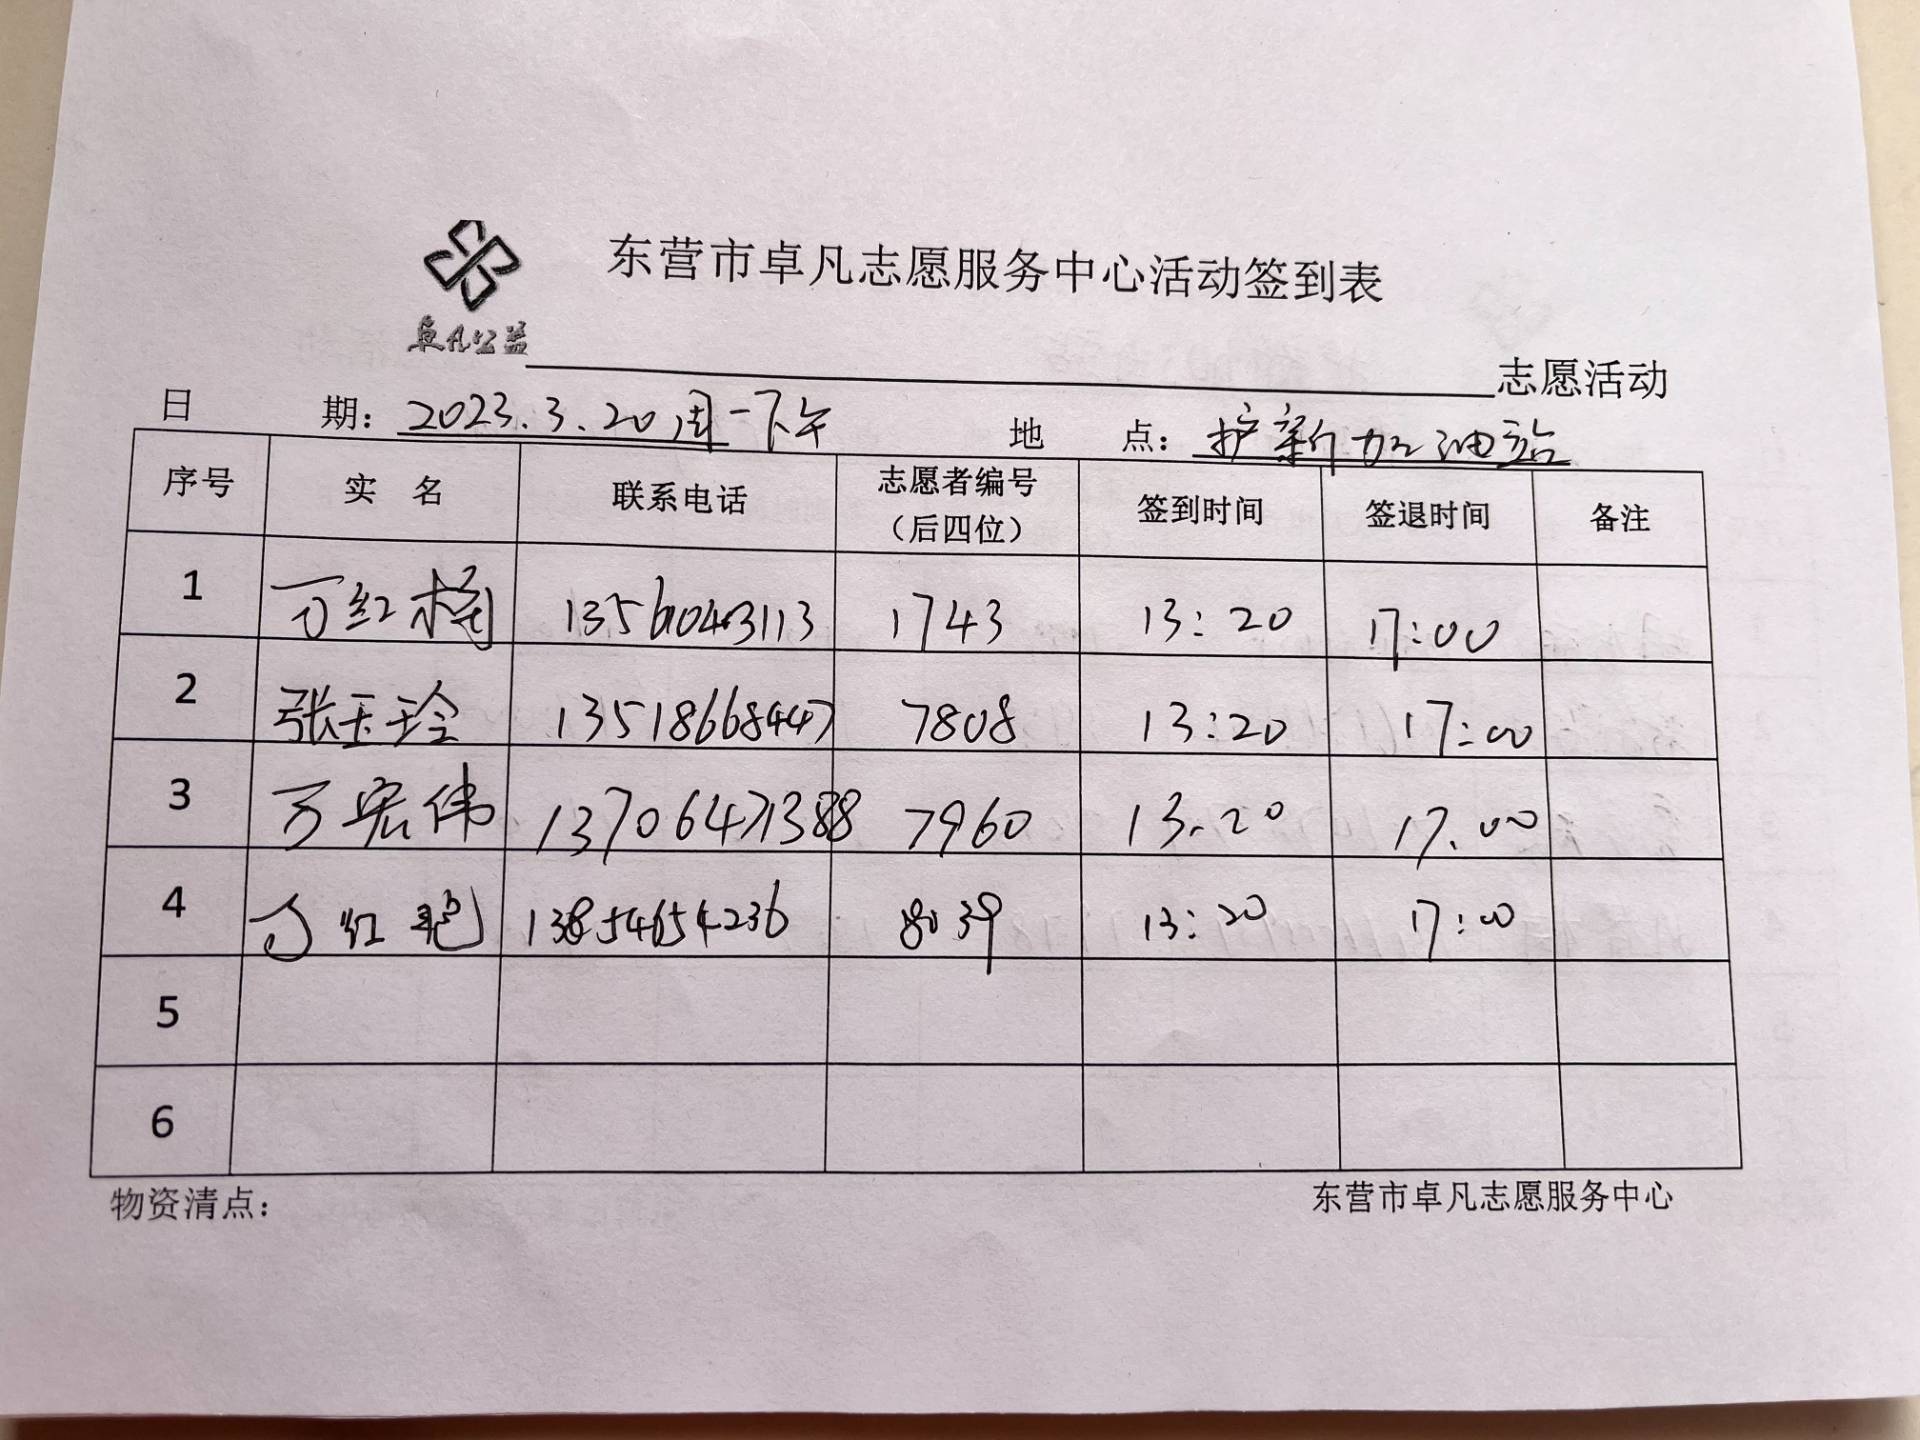 东营市卓凡志愿服务中心活动签到表
卓凡公益
志愿活动
日 期：2023.3.20周一下午 地 点：护新加油站
序号 实 名 联系电话 志愿者编号（后四位） 签到时间 签退时间 备注
1 万红梅 13561043113 1743 13:20 17:00
2 张玉玲 13518668447 7808 13:20 17:00
3 万宏伟 13706471388 7960 13.20 17.00
4 万红艳 13854654236 8039 13:20 17:00
5
6
物资清点： 东营市卓凡志愿服务中心